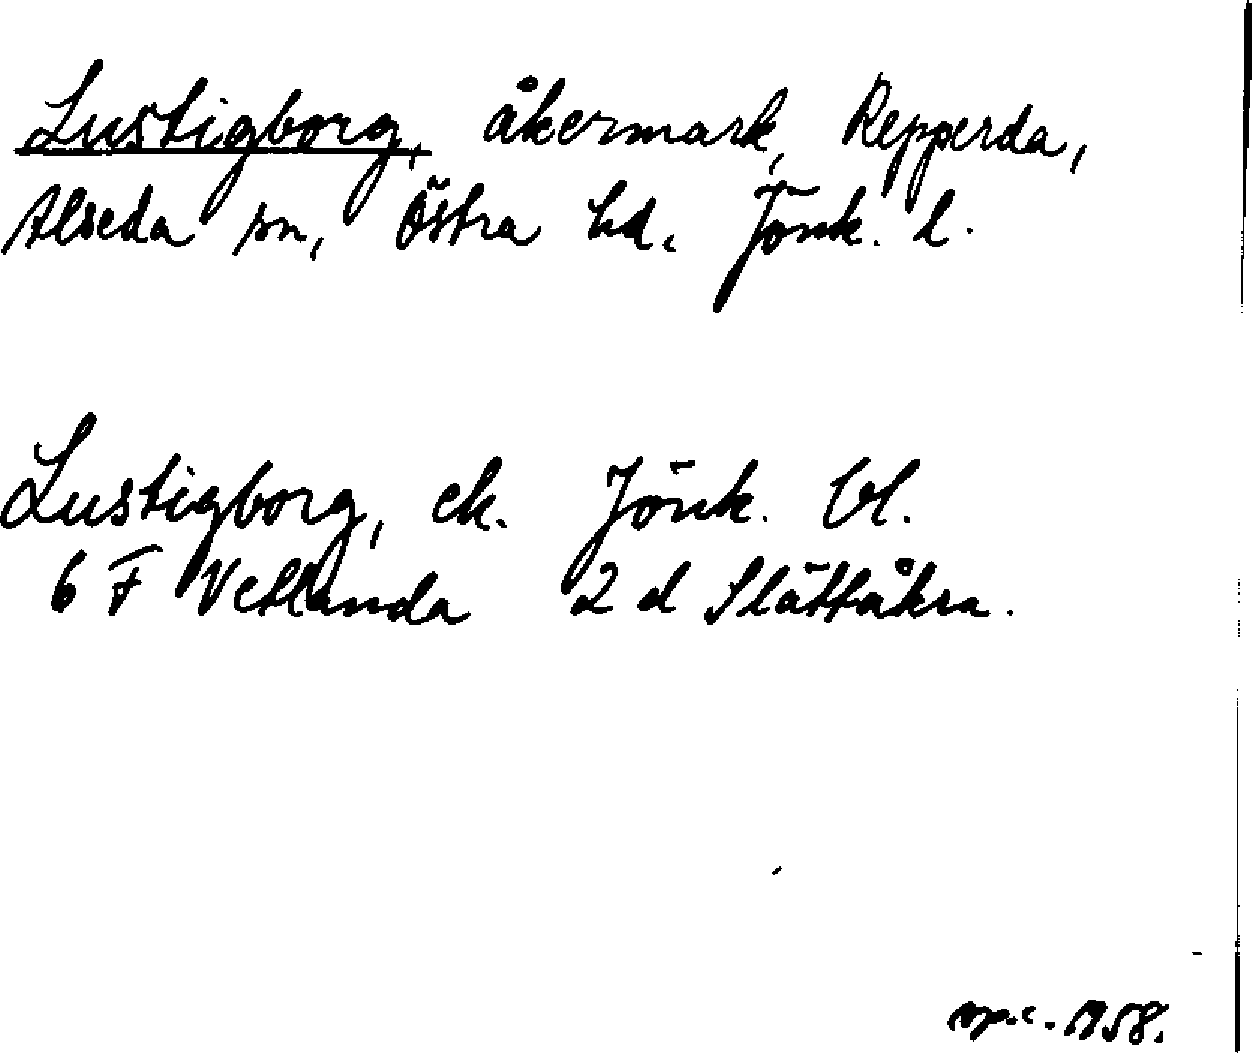 Lustigborg, åkermark, Repperda,
Alseda sn, Östra hd. Jönk. l.
Lustigborg, ek. Jönk. bl.
6 F Vetlanda 2 d Slättåkra.
1958.